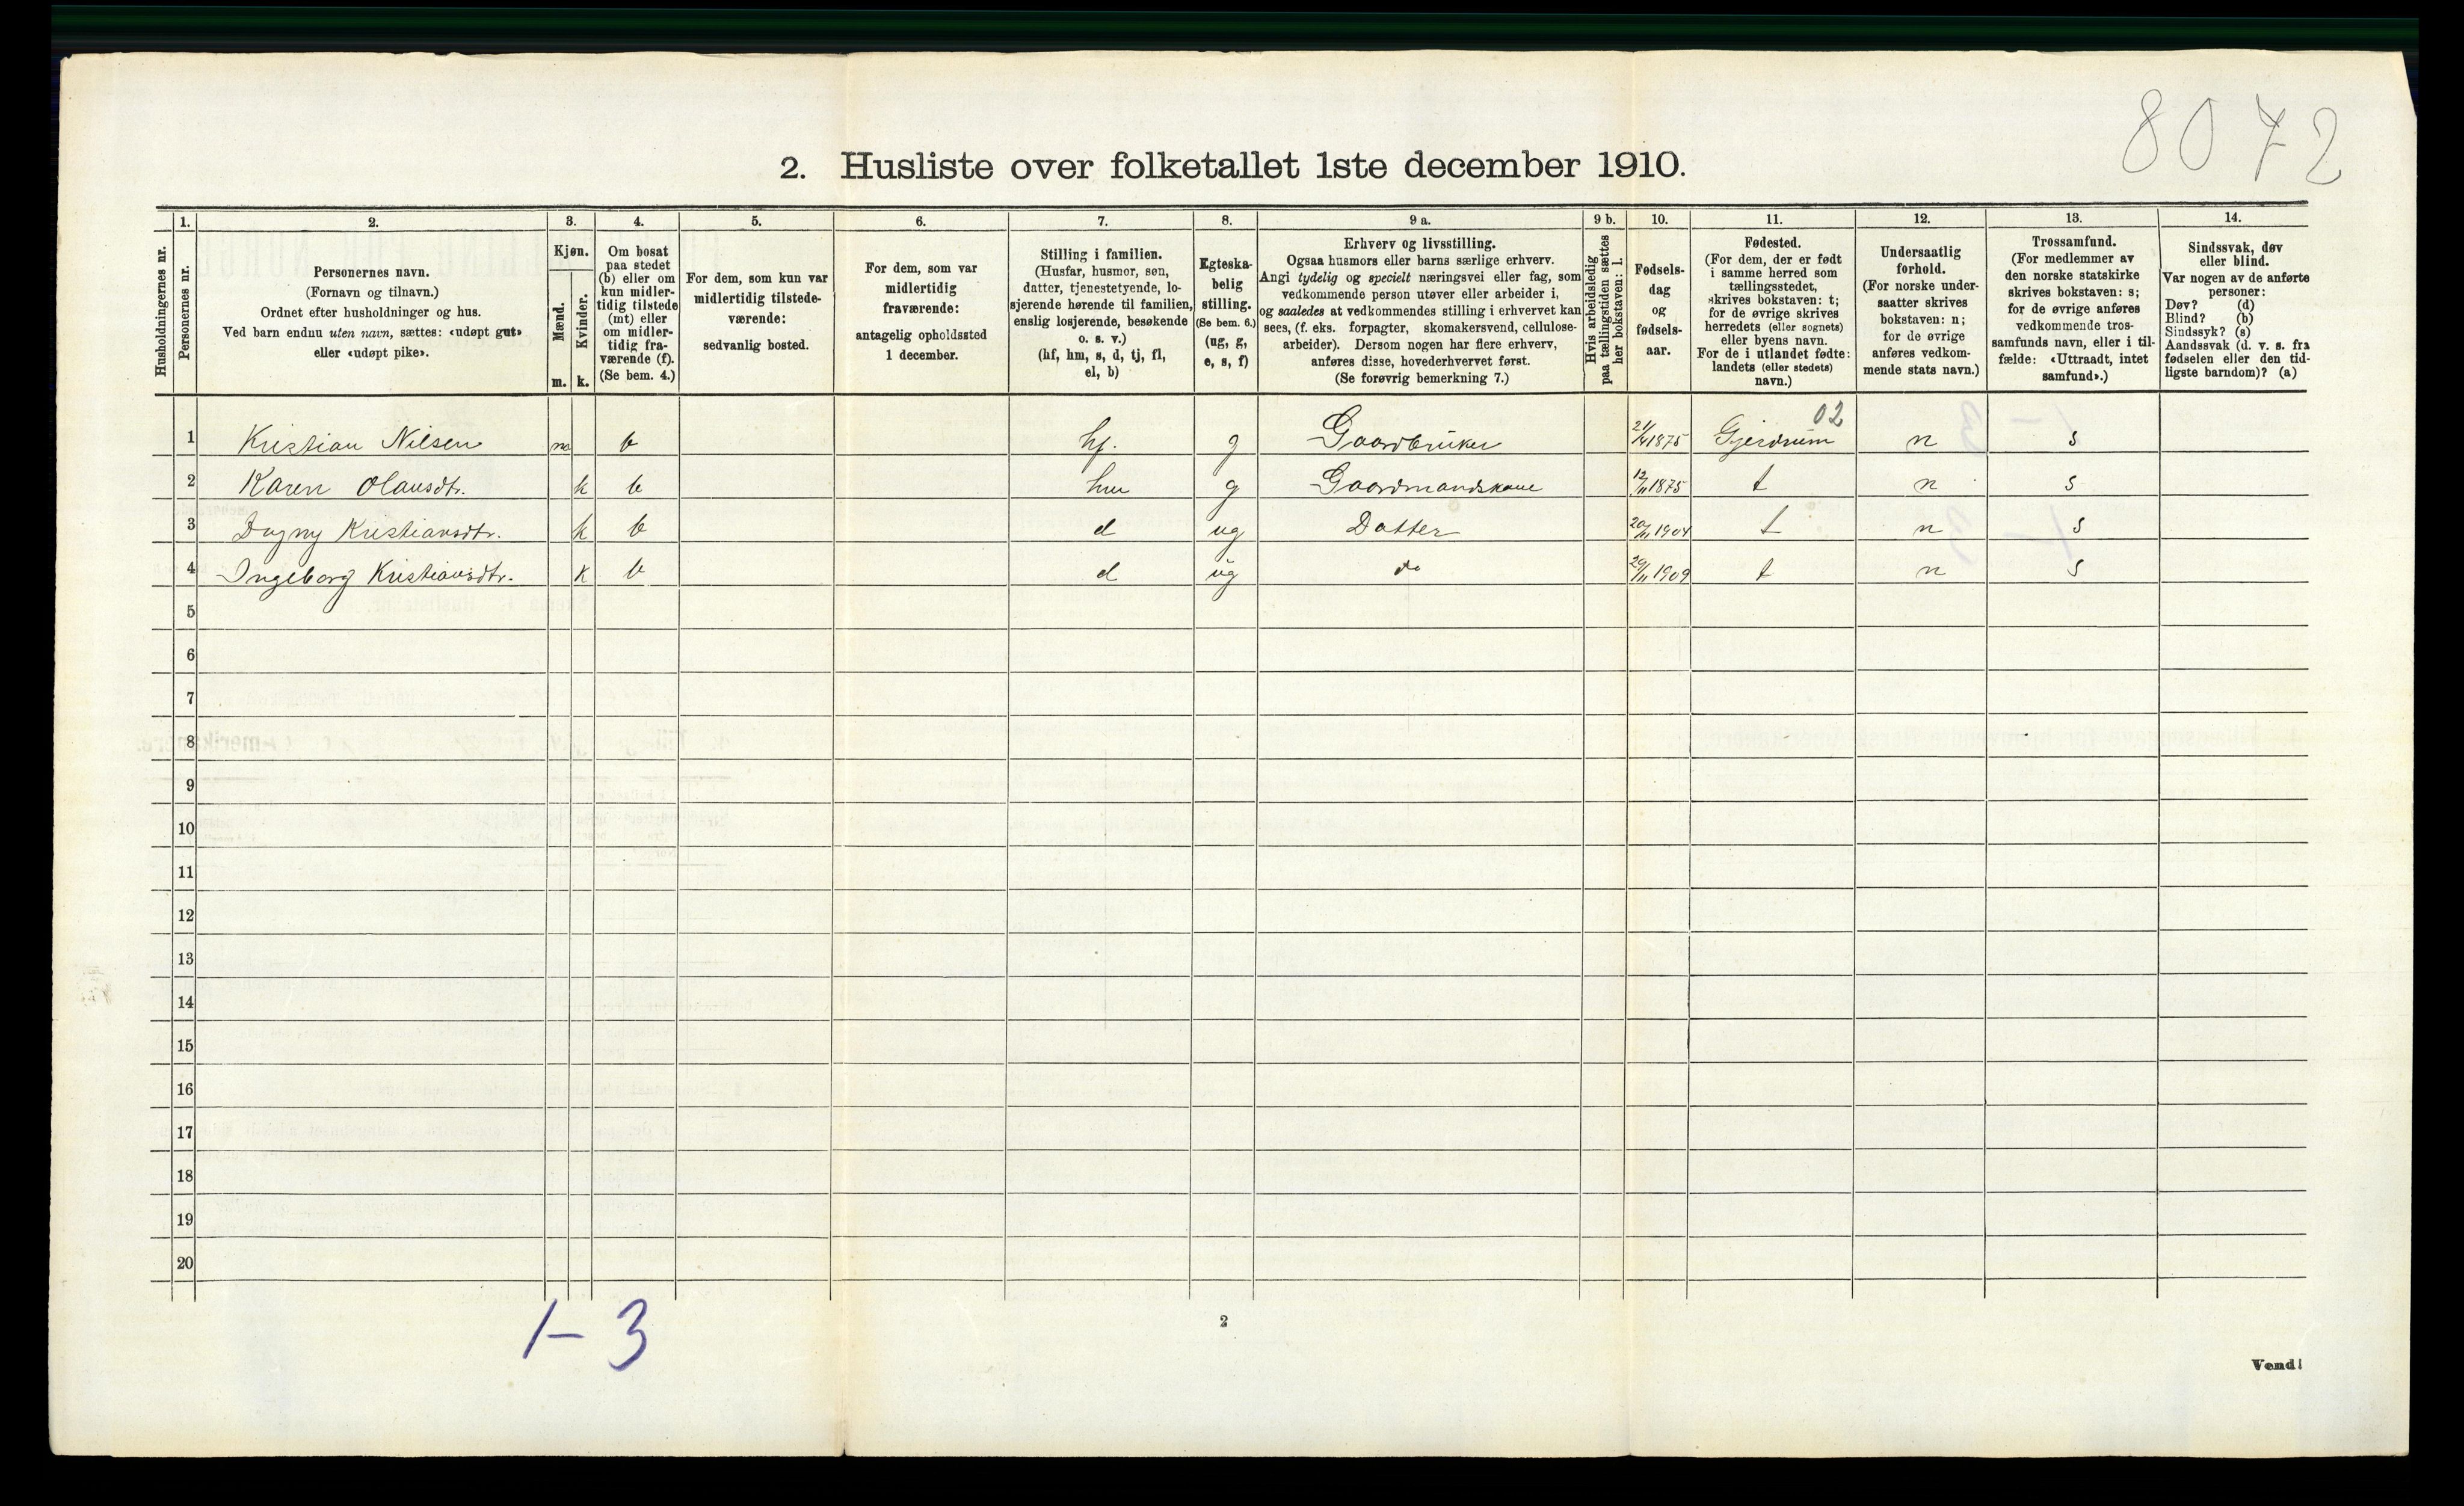 8072
2. Husliste over folketallet 1ste december 1910.
Husholdningernes nr.
1.
Personernes nr.
2.
Personernes navn.
(Fornavn og tilnavn.)
Ordnet efter husholdninger og hus.
Ved barn endnu uten navn, sættes: «udøpt gut»
eller «udøpt pike».
3.
Kjøn.
Mænd.
Kvinder.
m. k.
4.
Om bosat
paa stedet
(b) eller om
kun midler-
tidig tilstede
(mt) eller
om midler-
tidig fra-
værende (f).
(Se bem. 4.)
5.
For dem, som kun var
midlertidig tilstede-
værende:
sedvanlig bosted.
6.
For dem, som var
midlertidig
fraværende:
antagelig opholdssted
1 december.
7.
Stilling i familien.
(Husfar, husmor, søn,
datter, tjenestetyende, lo-
sjerende hørende til familien,
enslig losjerende, besøkende
o. s. v.)
(hf, hm, s, d, tj, fl,
el, b)
8.
Egteska-
belig
stilling.
(Se bem. 6.)
(ug, g,
e, s, f)
9 a.
Erhverv og livsstilling.
Ogsaa husmors eller barns særlige erhverv.
Angi tydelig og specielt næringsvei eller fag, som
vedkommende person utøver eller arbeider i,
og saaledes at vedkommendes stilling i erhvervet kan
sees, (f. eks. forpagter, skomakersvend, cellulose-
arbeider). Dersom nogen har flere erhverv,
anføres disse, hovederhvervet først.
(Se forøvrig bemerkning 7.)
9 b.
Hvis arbeidsledig
paa tællingstiden sættes
her bokstaven: l.
10.
Fødsels-
dag
og
fødsels-
aar.
11.
Fødested.
(For dem, der er født
i samme herred som
tællingsstedet,
skrives bokstaven: t;
for de øvrige skrives
herredets (eller sognets)
eller byens navn.
For de i utlandet fødte:
landets (eller stedets)
navn.)
12.
Undersaatlig
forhold.
(For norske under-
saatter skrives
bokstaven: n;
for de øvrige
anføres vedkom-
mende stats navn.)
13.
Trossamfund.
(For medlemmer av
den norske statskirke
skrives bokstaven: s;
for de øvrige anføres
vedkommende tros-
samfunds navn, eller i til-
fælde: «Uttraadt, intet
samfund».)
14.
Sindssvak, døv
eller blind.
Var nogen av de anførte
personer:
Døv? (d)
Blind? (b)
Sindssyk? (s)
Aandssvak (d. v. s. fra
fødselen eller den tid-
ligste barndom)? (a)
02
1 Kristian Nilsen m b hf. g Gaardbruker 21/4 1875 Gjerdrum n s
2 Karen Olausdtr. k b hm g Gaardmandskone 12/11 1875 t n s
3 Dagny Kristiansdtr. k b d ug Datter 1904 t n s
4 Ingeborg Kristiansdtr. k b d ug do 29/11 1909 t n s
5
6
7
8
9
10
11
12
13
14
15
16
17
18
19
20
1-3
2
Vend!